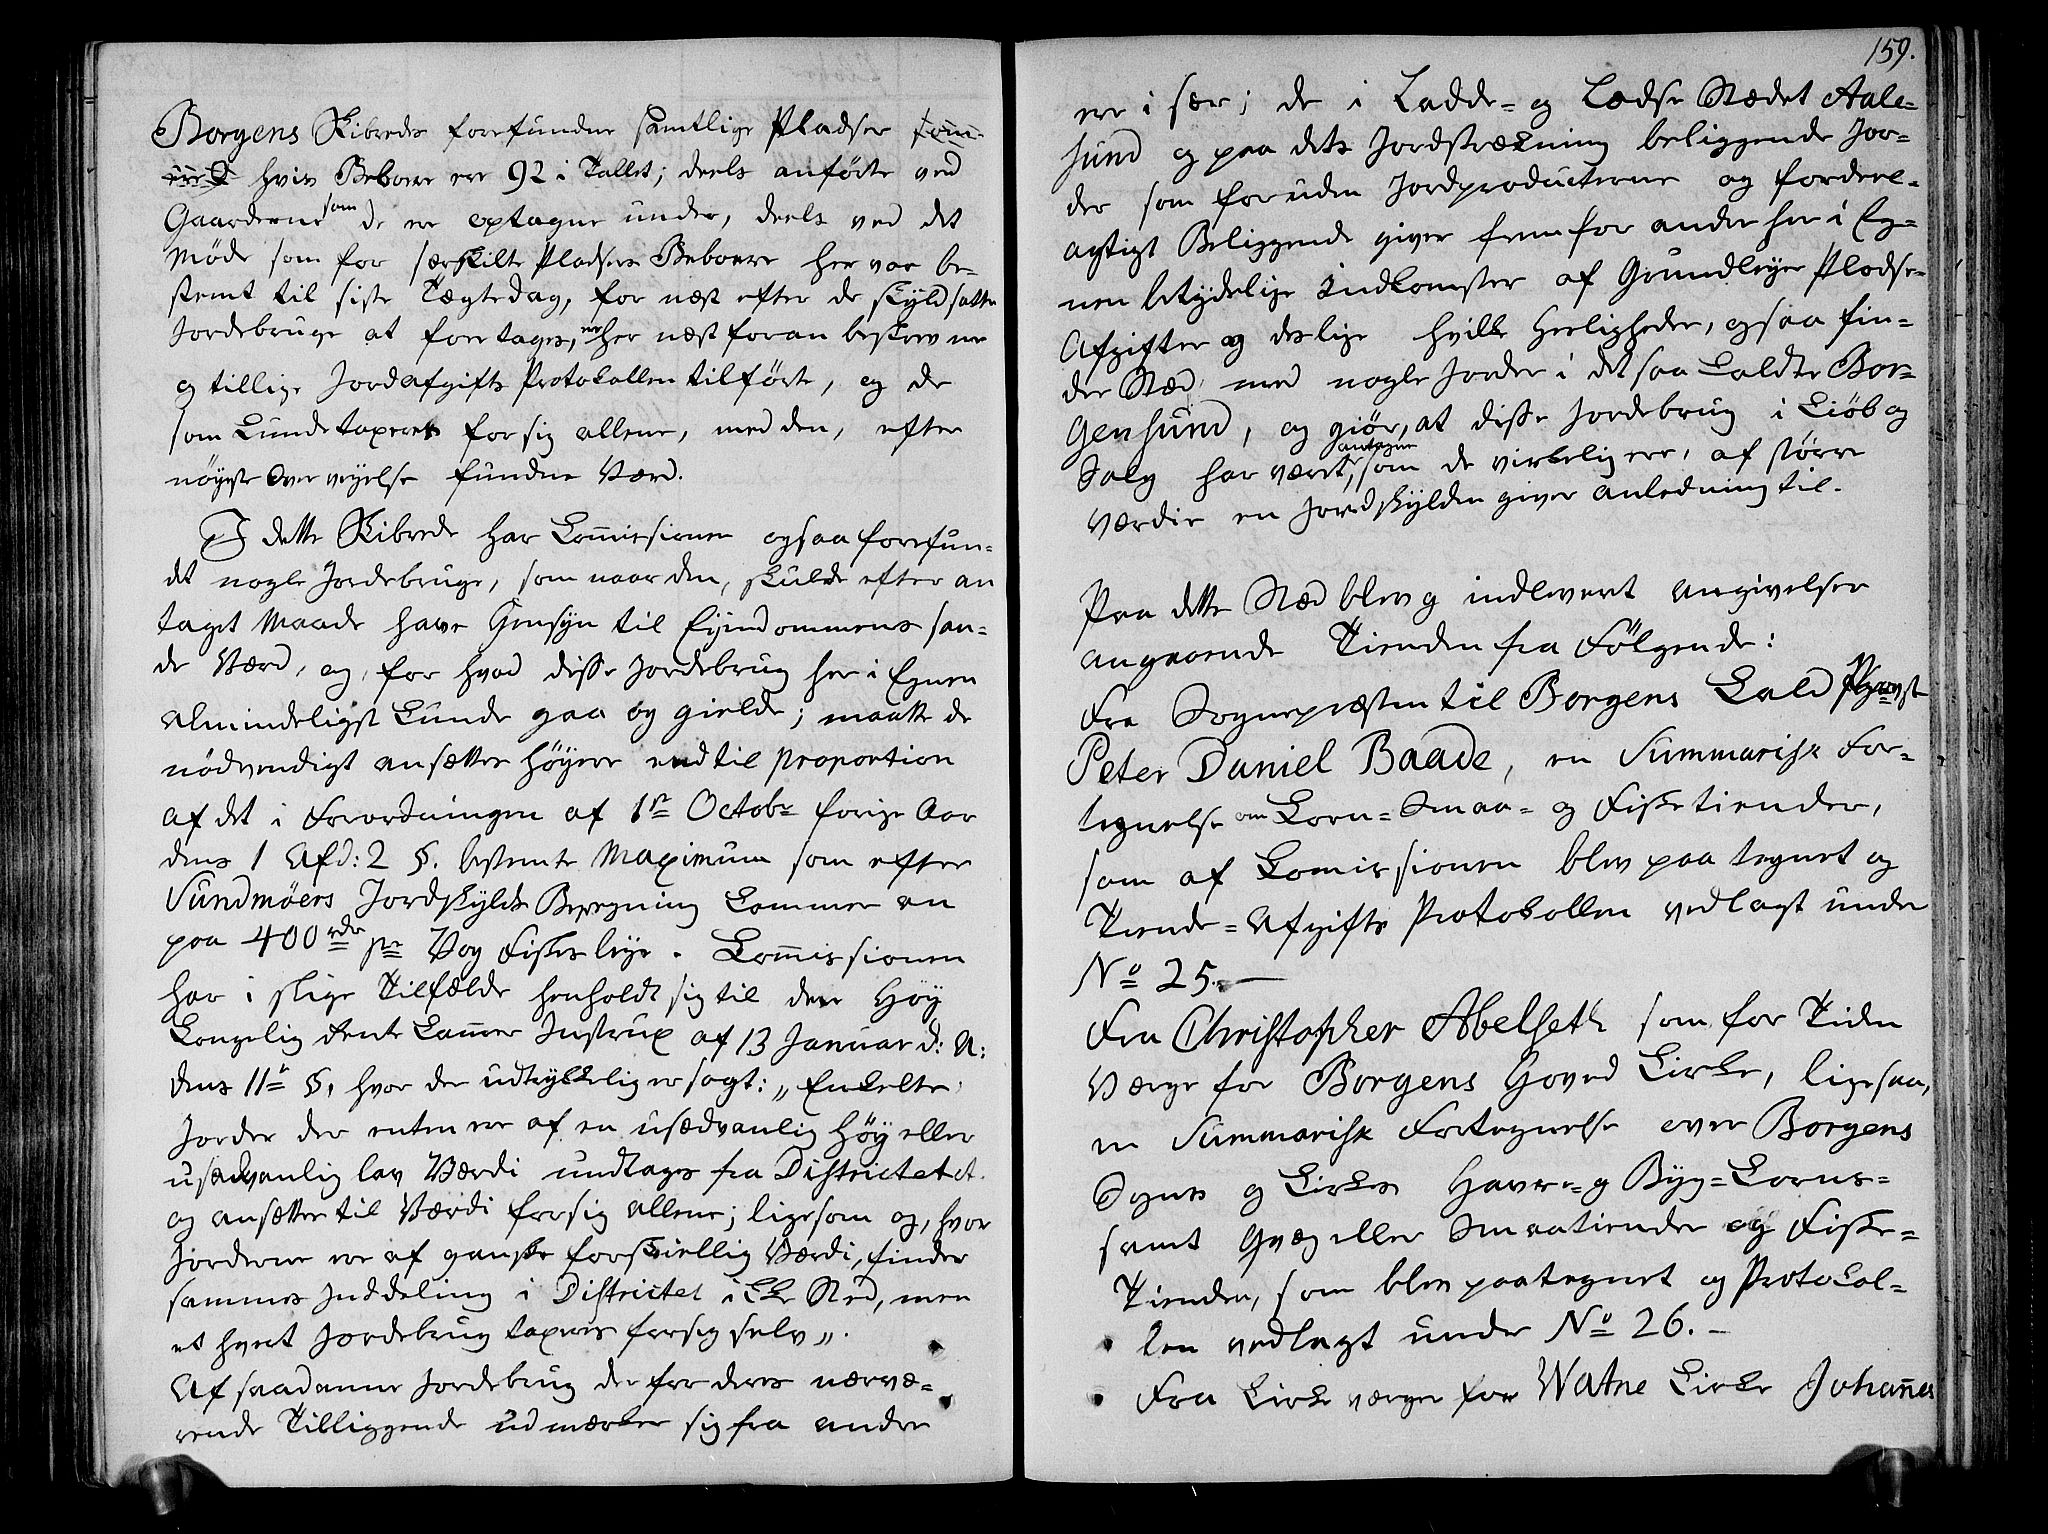 Borgens Skibreds forefundne samtlige Pladser
hvis Beboere ere 92 i Tallet; deels anførte ved
Gaarderne som de ere optagne under, deels ved det
Møde som for særskilte Pladses Beboere her var be-
stemt til siste Tægtedag, for næst efter de skyldsatte
Jordebruge at foretages, ere her næst foran beskrevne
og tillige Jordafgifts Protokollen tilførte, og de
som kunde taxeret for sig allene, med den, efter
nøyeste Overveyelse fundne Værd.
I dette Skibrede har Commissionen ogsaa forefun-
det nogle Jordebruge, som naar den, skulde efter an
taget Maade have Hensyn til Eyendommens san-
de Værd, og, for hvad disse Jordebrug her i Egnen
almindeligst kunde gaa og gielde; maatte de
nødvendigt ansættes høyere end til proportion
af det i Forordningen af 1ste Octobr forige Aar
dens 1 Afd: 2 §. bestemte Maximum som efter
Sundmøers Jordskylds Beregning kommer an
paa 400 rdr pr Vog Fiskesleye. Commissionen
har i slige Tilfælde henholdt sig til den Høy
Kongelig Rente Kamer Instrux af 13 Januar d: A:
dens 11te §, hvor der udtrykkelig er sagt: „Enkelte
Jorder der enten ere af en usædvanlig Høy eller
usædvanlig lav Værdi undtages fra Districtet
og ansættes til Værdi for sig allene; ligesom og, hvor
Jorderne ere af ganske forskiellig Værdi, finder
sammes Inddeling i Districter ikke Sted, men
et hvert Jordebrug taxeres for sig selv„.
Af saadanne Jordebrug der for deres nærvæ-
rende Tilliggende udmærker sig fra andre
159.
ere i sær; de i Ladde- og Lodse Stædet Aale-
sund og paa dets Jordstrækning beliggende Jor-
der som foruden Jordproducterne og fordeel-
agtigt Beliggende giver frem for andre her i Eg-
nen betydelige Indkomster af Grundleye Pladse-
Afgifter og deslige hvilke Herligheder, ogsaa fin-
der Stæd med nogle Jorder i det saa kaldte Bor-
gensund, og giør, at disse Jordebrug i Kiøb og
Salg har været antagne, som de virkelig ere, af større
Værdie en Jordskylden giver anledning til.
Paa dette Stæd blev og indleveret angivelser
angaaende Tienden fra Følgende:
Fra Sognepræsten til Borgens Kald
Peter Daniel Baade, en Summarisk For-
tegnelse om Korn- Smaa- og Fisketiender,
som af Comissionen blev paategnet og
Tiende-Afgifts Protokollen vedlagt under
No 25.
Fra Christopher Abelseth som for Tiden
Værge for Borgens Hoved Kirke, ligesaa,
en Summarisk Fortegnelse over Borgens
Sogns og Kirkes Havre- og Byg-Korns-
samt Qvæg eller Smaatiender og Fiske-
Tienden, som blev paategnet og Protokol-
len vedlagt under No 26.
Fra Kirke værgen for Watne Kirke Johannes